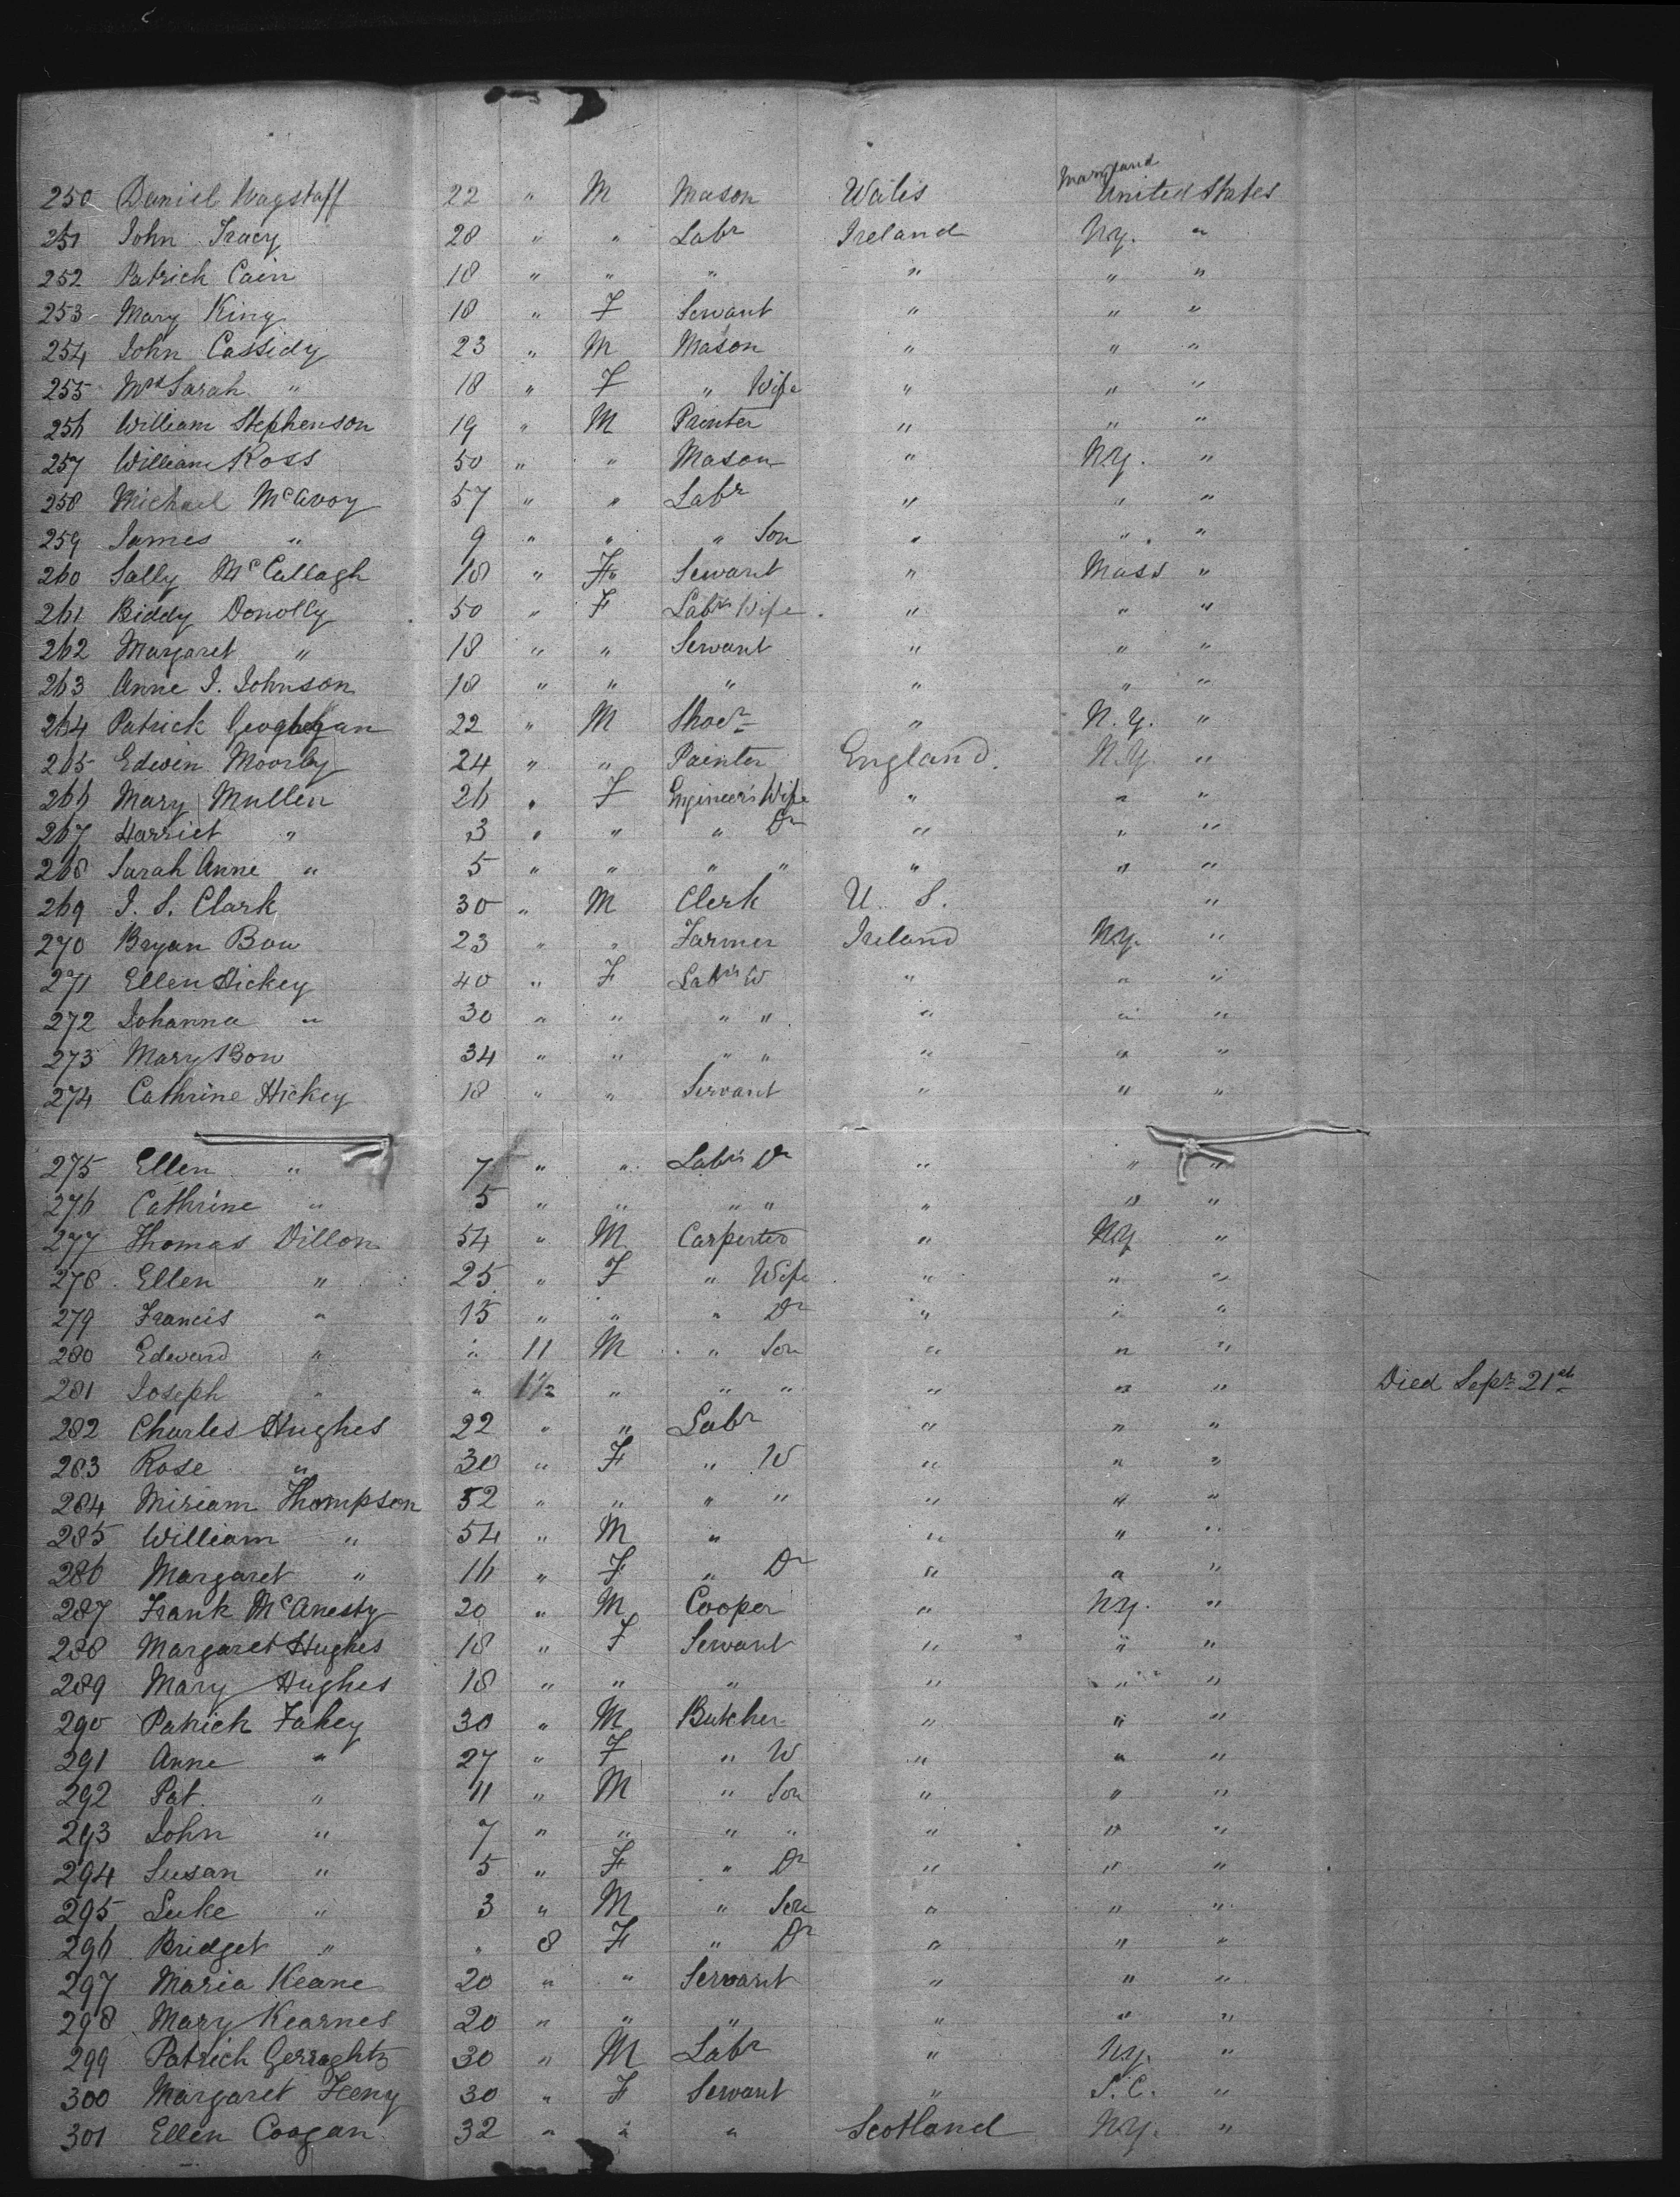 250 Daniel Wagstaff 22 " M Mason Wales Maryland United States
251 John Tracy 28 " " Labr Ireland N.y. "
252 Patrick Cain 18 " " " " " "
253 Mary King 18 " F Servant " " "
254 John Cassidy 23 " M Mason " " "
255 Mrs Sarah " 18 " F " Wife " " "
256 William Stephenson 19 " M Painter " " "
257 William Ross 50 " " Mason " N.y. "
258 Michael McAvoy 57 " " Labr " " "
259 James " 9 " " " Son " " "
260 Sally McCallagh 18 " F" Servant " Mass "
261 Biddy Donolly 50 " F Labrs Wife " " "
262 Margaret " 18 " " Servant " " "
263 Anne J. Johnson 18 " " " " " "
264 Patrick Geoghegan 22 " M Shoer " N.y. "
265 Edwin Moorby 24 " " Painter England. N.y. "
266 Mary Mullen 26 " F Engineer's Wife " " "
267 Harriet " 3 " " " Dr " " "
268 Sarah Anne " 5 " " " " " " "
269 J. S. Clark 30 " M Clerk U. S. "
270 Bryan Bow 23 " " Farmer Ireland N.y. "
271 Ellen Hickey 40 " F Labrs W " " "
272 Johanna " 30 " " " " " " "
273 Mary Bow 34 " " " " " " "
274 Cathrine Hickey 18 " " Servant " " "
275 Ellen " 7 " " Labrs Dr " " "
276 Cathrine " 5 " " " " " " "
277 Thomas Dillon 54 " M Carpenter " N.y "
278 Ellen " 25 " F " Wife " " "
279 Francis " 15 " " " Dr " " "
280 Edward " " 11 M " Son " " "
281 Joseph " " 1½ " " " " " " Died Sepr 21st
282 Charles Hughes 22 " " Labr " " "
283 Rose " 30 " F " W " " "
284 Miriam Thompson 52 " " " " " " "
285 William " 54 " M " " " "
286 Margaret " 16 " F " Dr " " "
287 Frank McAnesty 20 " M Cooper " N.y. "
288 Margaret Hughes 18 " F Servant " " "
289 Mary Hughes 18 " " " " " "
290 Patrick Fahey 30 " M Butcher " " "
291 Anne " 27 " F " W " " "
292 Pat. " 11 " M " Son " " "
293 John " 7 " " " " " " "
294 Susan " 5 " F " Dr " " "
295 Luke " 3 " M " Son " " "
296 Bridget " " 8 F " Dr " " "
297 Maria Keane 20 " " Servant " " "
298 Mary Kearnes 20 " " " " " "
299 Patrick Gerraghty 30 " M Labr " N.y. "
300 Margaret Feeny 30 " F Servant " S.C. "
301 Ellen Coogan 32 " " " Scotland N.y. "